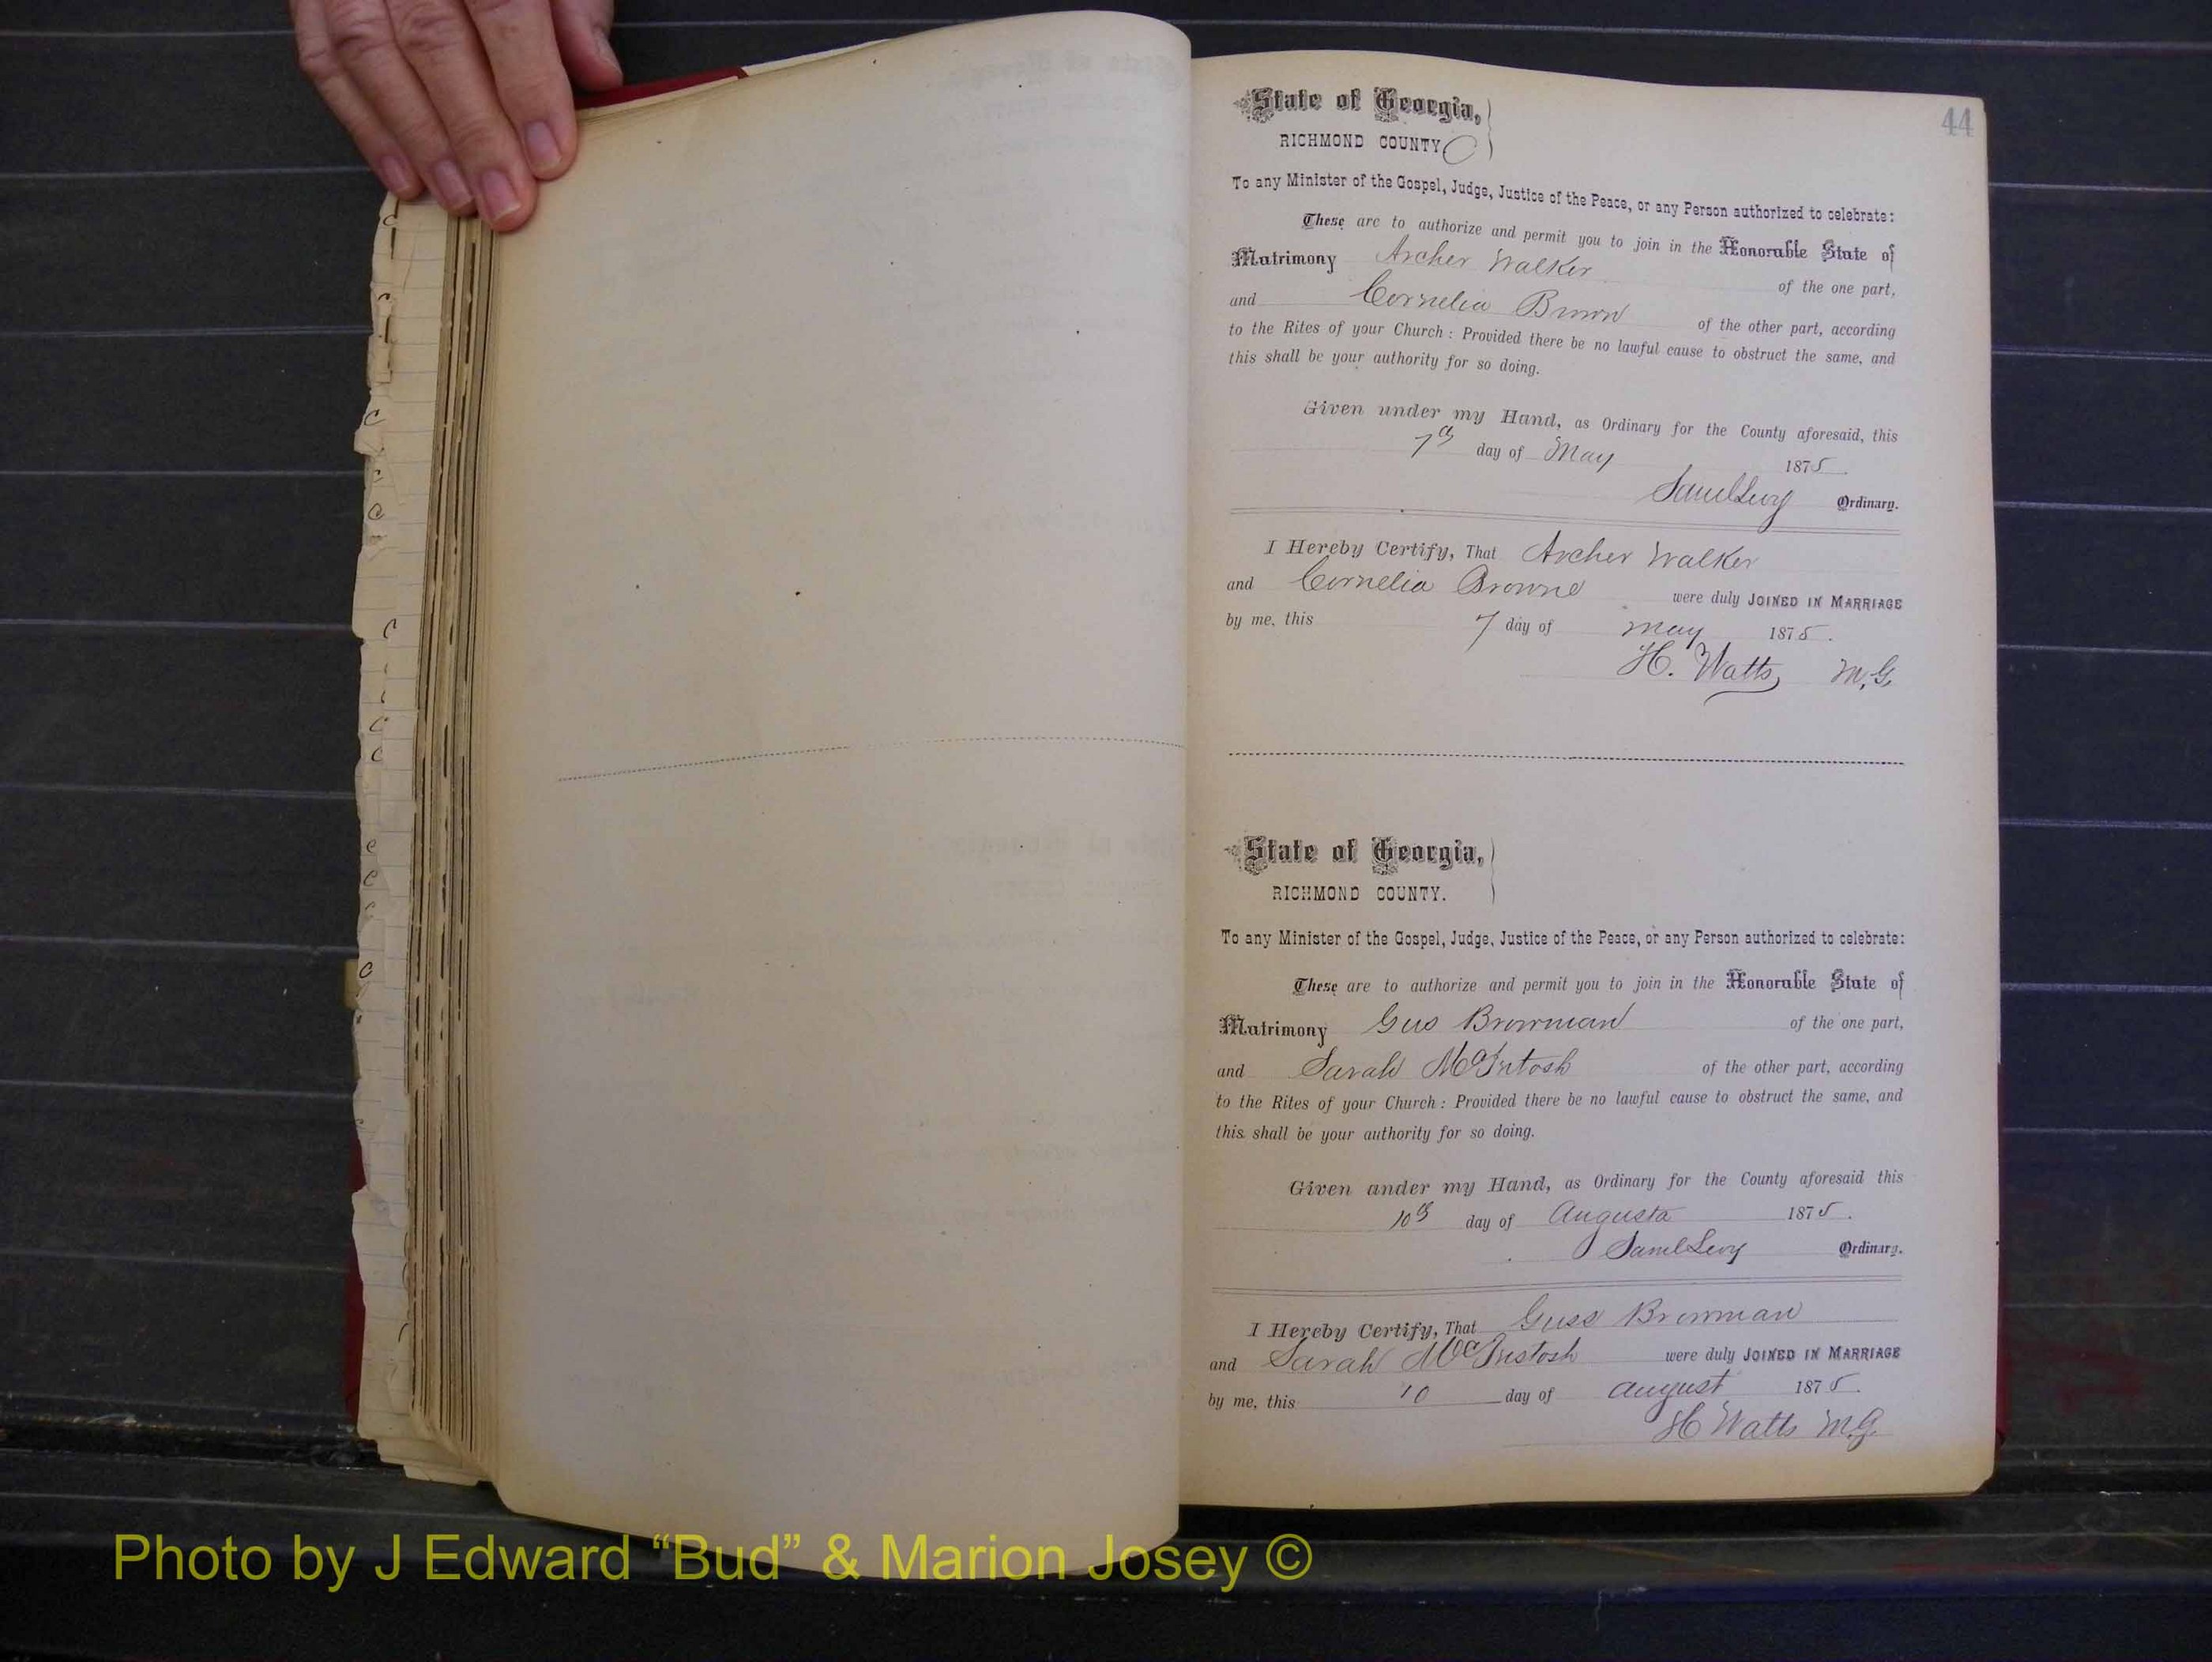 44
State of Georgia,
RICHMOND COUNTY C
To any Minister of the Gospel, Judge, Justice of the Peace, or any Person authorized to celebrate:
These are to authorize and permit you to join in the Honorable State of
Matrimony Archer Walker of the one part,
and Cornelia Brown of the other part, according
to the Rites of your Church: Provided there be no lawful cause to obstruct the same, and
this shall be your authority for so doing.
Given under my Hand, as Ordinary for the County aforesaid, this
7th day of May 1875.
Saml Levy Ordinary.
I Hereby Certify, That Archer Walker
and Cornelia Browne were duly JOINED IN MARRIAGE
by me, this 7 day of may 1875.
H. Watts, M.G.
State of Georgia,
RICHMOND COUNTY.
To any Minister of the Gospel, Judge, Justice of the Peace, or any Person authorized to celebrate:
These are to authorize and permit you to join in the Honorable State of
Matrimony Gus Browman of the one part,
and Sarah McIntosh of the other part, according
to the Rites of your Church: Provided there be no lawful cause to obstruct the same, and
this shall be your authority for so doing.
Given under my Hand, as Ordinary for the County aforesaid this
10th day of Augusta 1875.
Saml Levy Ordinary.
I Hereby Certify, That Guss Browman
and Sarah McIntosh were duly JOINED IN MARRIAGE
by me, this 10 day of august 1875.
H Watts M.G.
Photo by J Edward “Bud” & Marion Josey ©